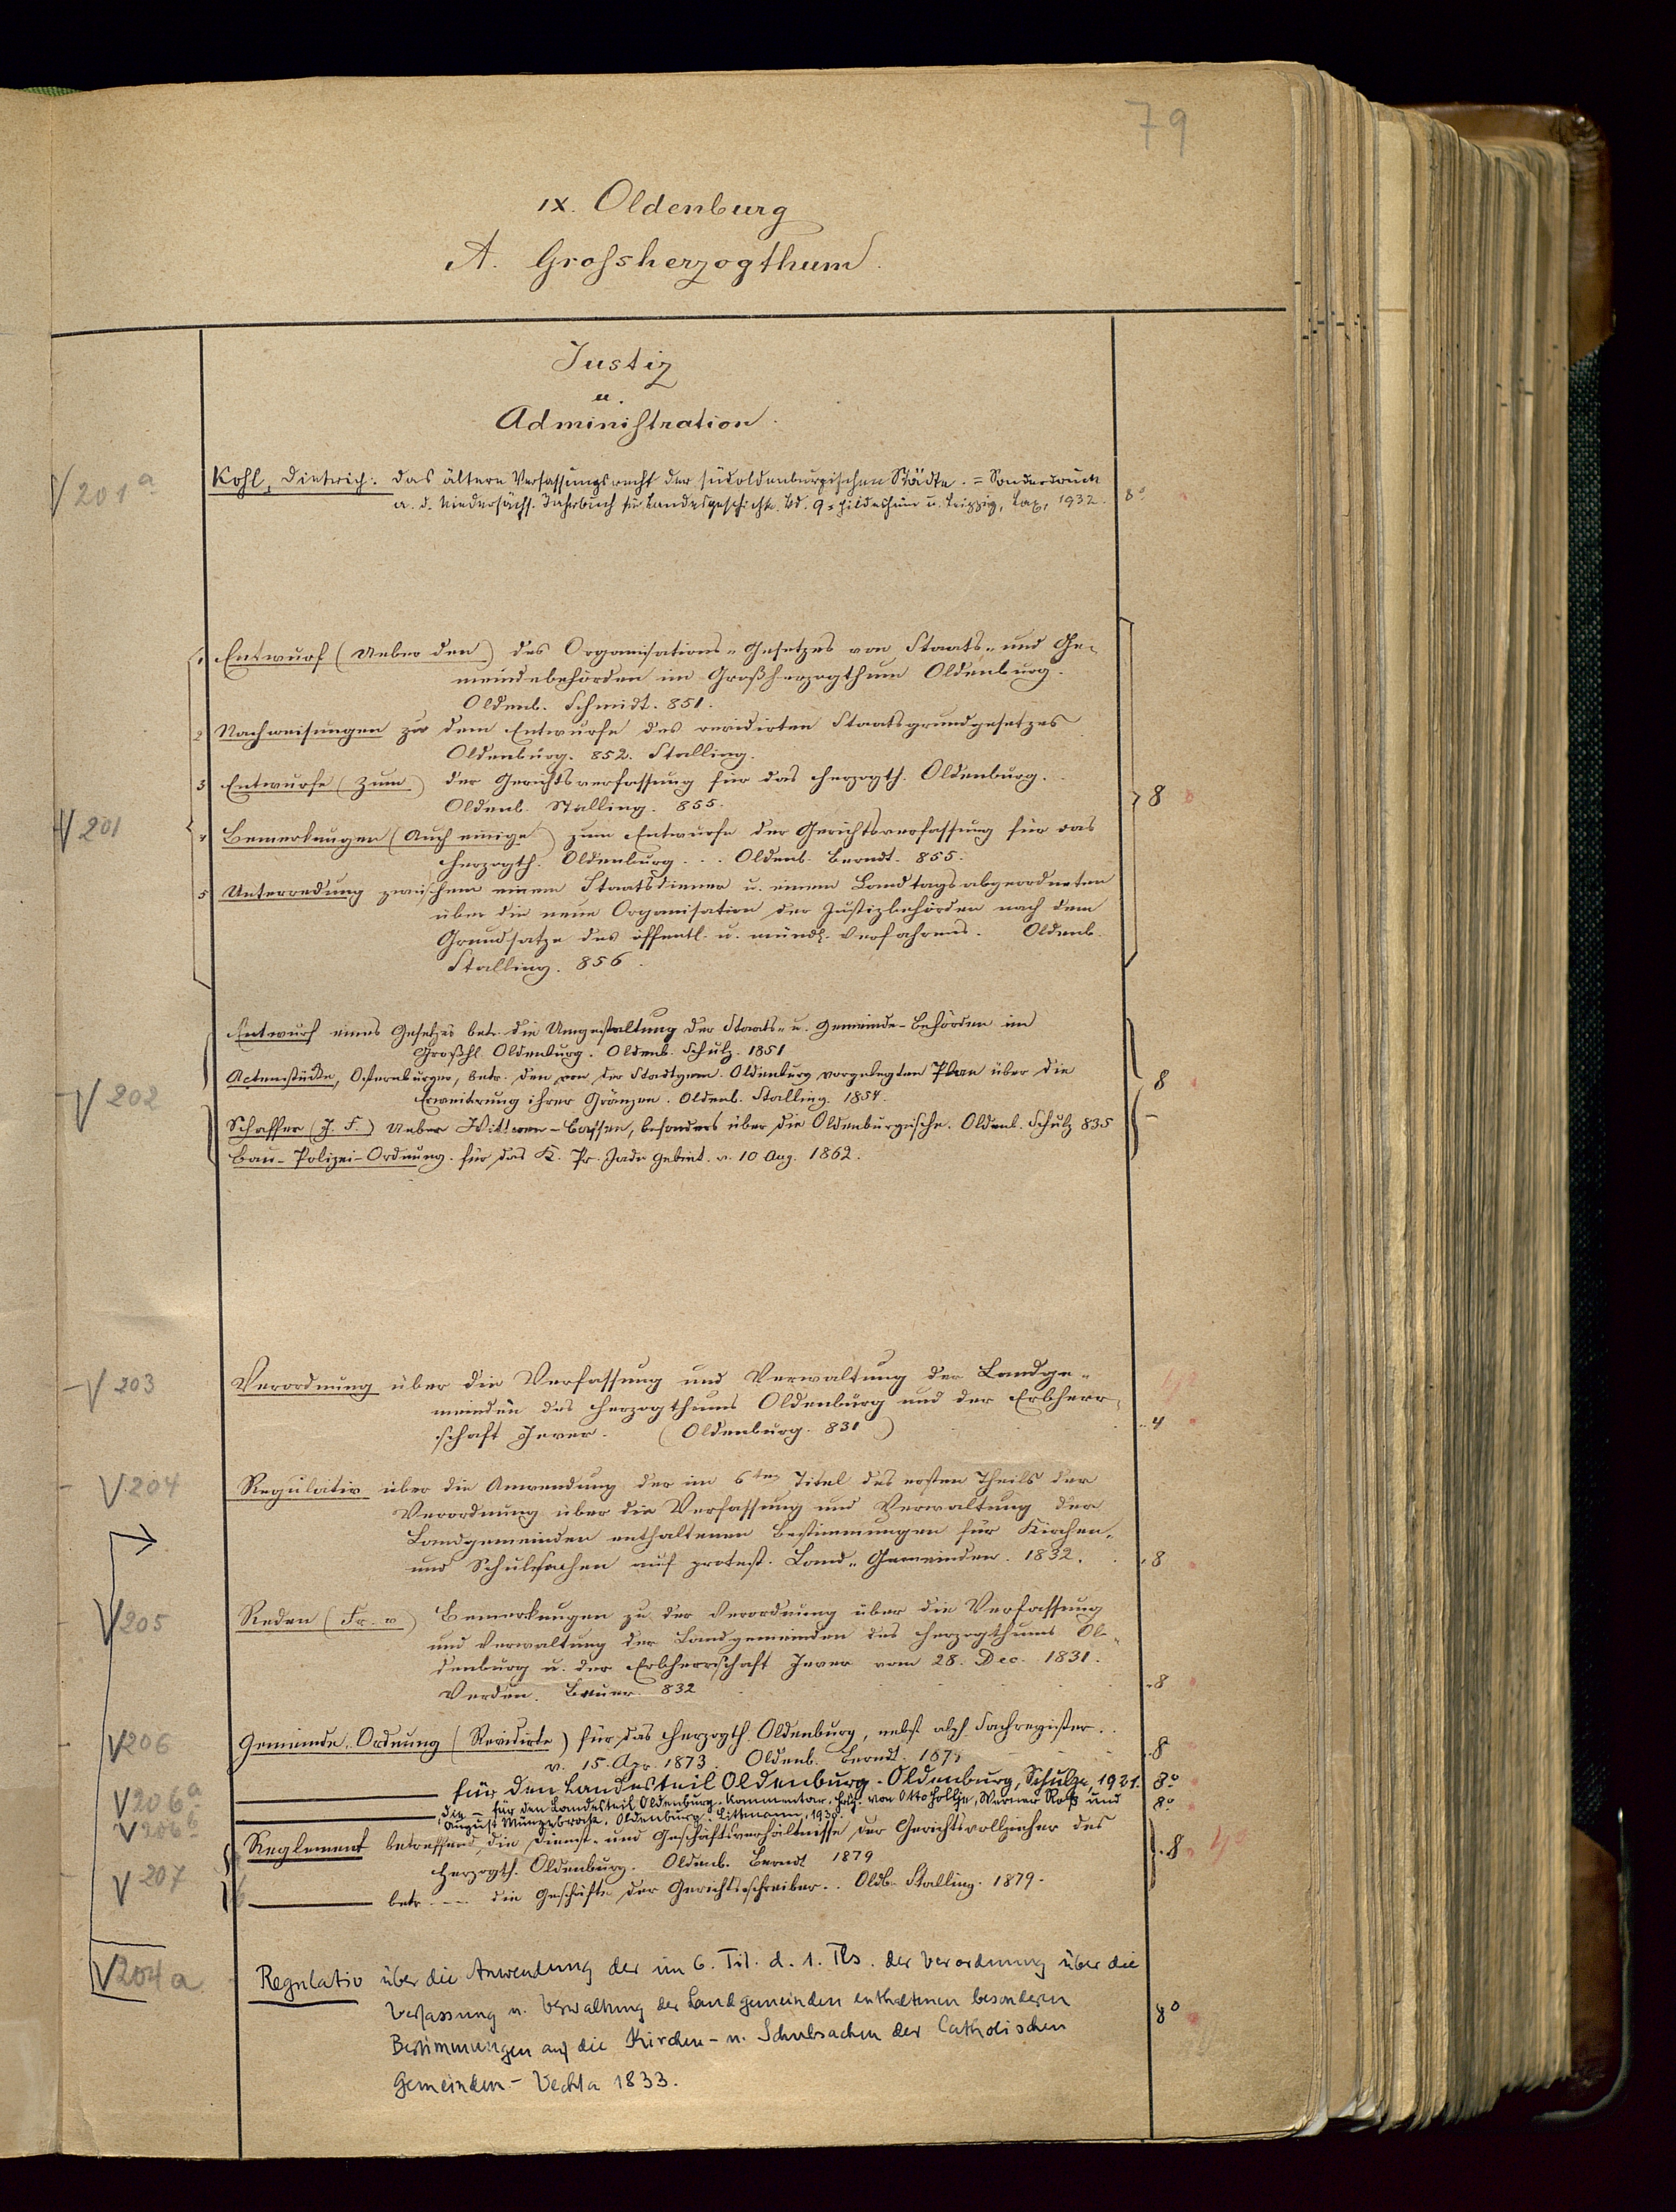 79
IX. Oldenburg
A. Grossherzogthum
Justiz
u.
Administration.
V 201 a
Kohl, Dietrich. Das ältere Verfassungsrecht der südoldenburgischen Städte. = Sonderdruck
a. d. Niedersächs. Jahrbuch für Landesgeschichte. Bd. 9. Hildesheim u. Leipzig, Lax, 1932. 8°
1 Entwurf (Ueber den) des Organisations-Gesetzes von Staats- und Ge-
meindebehörden im Großherzogthum Oldenburg.
Oldenb. Schmidt. 851.
2 Nachweisungen zu dem Entwurfe des revidirten Staatsgrundgesetzes
Oldenburg. 852. Stalling.
3 Entwurfe (Zum) der Gerichtsverfassung für das Herzogth. Oldenburg.
Oldenb. Stalling. 855. 8
V 201
4 Bemerkungen (Auch einige) zum Entwurfe der Gerichtsverfassung für das
Herzogth. Oldenburg. . . Oldenb. Berndt. 855.
5 Unterredung zwischen einem Staatsdiener u. einem Landtagsabgeordneten
über die neue Organisation der Justizbehörden nach dem
Grundsatze des öffentl. u. mündl. Verfahrens. Oldenb.
Stalling. 856.
Entwurf eines Gesetzes betr. die Umgestaltung der Staats- u. Gemeinde-Behörden im
Großh. Oldenburg. Oldenb. Schulz. 1851
V 202
Actenstücke, Osternburger, betr. den von der Stadtgem. Oldenburg vorgelegten Plan über die
Erweiterung ihrer Gränzen. Oldenb. Stalling. 1854. 8
Schaffer (J. F.) Ueber Wittwen-Cassen, besonders über die Oldenburgische. Oldenb. Schulz 835
Bau-Polizei-Ordnung. für das K. Pr. Jade Gebiet. v. 10 Aug. 1862.
V 203
Verordnung über die Verfassung und Verwaltung der Landge-
meinden des Herzogthums Oldenburg und der Erbherr-
schaft Jever. (Oldenburg. 831) 4
V 204
Regulativ über die Anwendung der im 6ten Titel des ersten Theils der
Verordnung über die Verfassung und Verwaltung der
Landgemeinden enthaltenen Bestimmungen für Kirchen-
und Schulsachen auf protest. Land-Gemeinden. 1832. 8
V 205
Reden (Fr. v) Bemerkungen zu der Verordnung über die Verfassung
und Verwaltung der Landgemeinden des Herzogthums Ol-
denburg u. der Erbherrschaft Jever vom 28. Dec. 1831.
Verden. Bauer. 832 8
V 206
Gemeinde-Ordnung (Revidirte) für das Herzogth. Oldenburg, nebst alph Sachregister.
v. 15. Apr. 1873. Oldenb. Berndt. 8
V 206 a
für den Landesteil Oldenburg - Oldenburg, Schulze, 1921. 8°
V 206 b
die — für den Landesteil Oldenburg. Kommentar. Hrsg. von Otto Hollje, Werner Roß und
August Münzebrock. Oldenburg: Littmann, 8°
V 207
Reglement betreffend, die Dienst- und Geschäftsverhältnisse der Gerichtsvollzieher des
Herzogth. Oldenburg. Oldenb. Berndt 1879 8
betr. --- die Geschäfte der Gerichtsschreiber. . Oldb. Stalling. 1879.
V 204 a
Regulativ über die Anwendung der im 6. Tit. d. 1. Tls. der Verordnung über die
Verfassung u. Verwaltung der Landgemeinden enthaltenen besonderen
Bestimmungen auf die Kirchen- u. Schulsachen der Catholischen
Gemeinden. - Vechta 1833. 8°